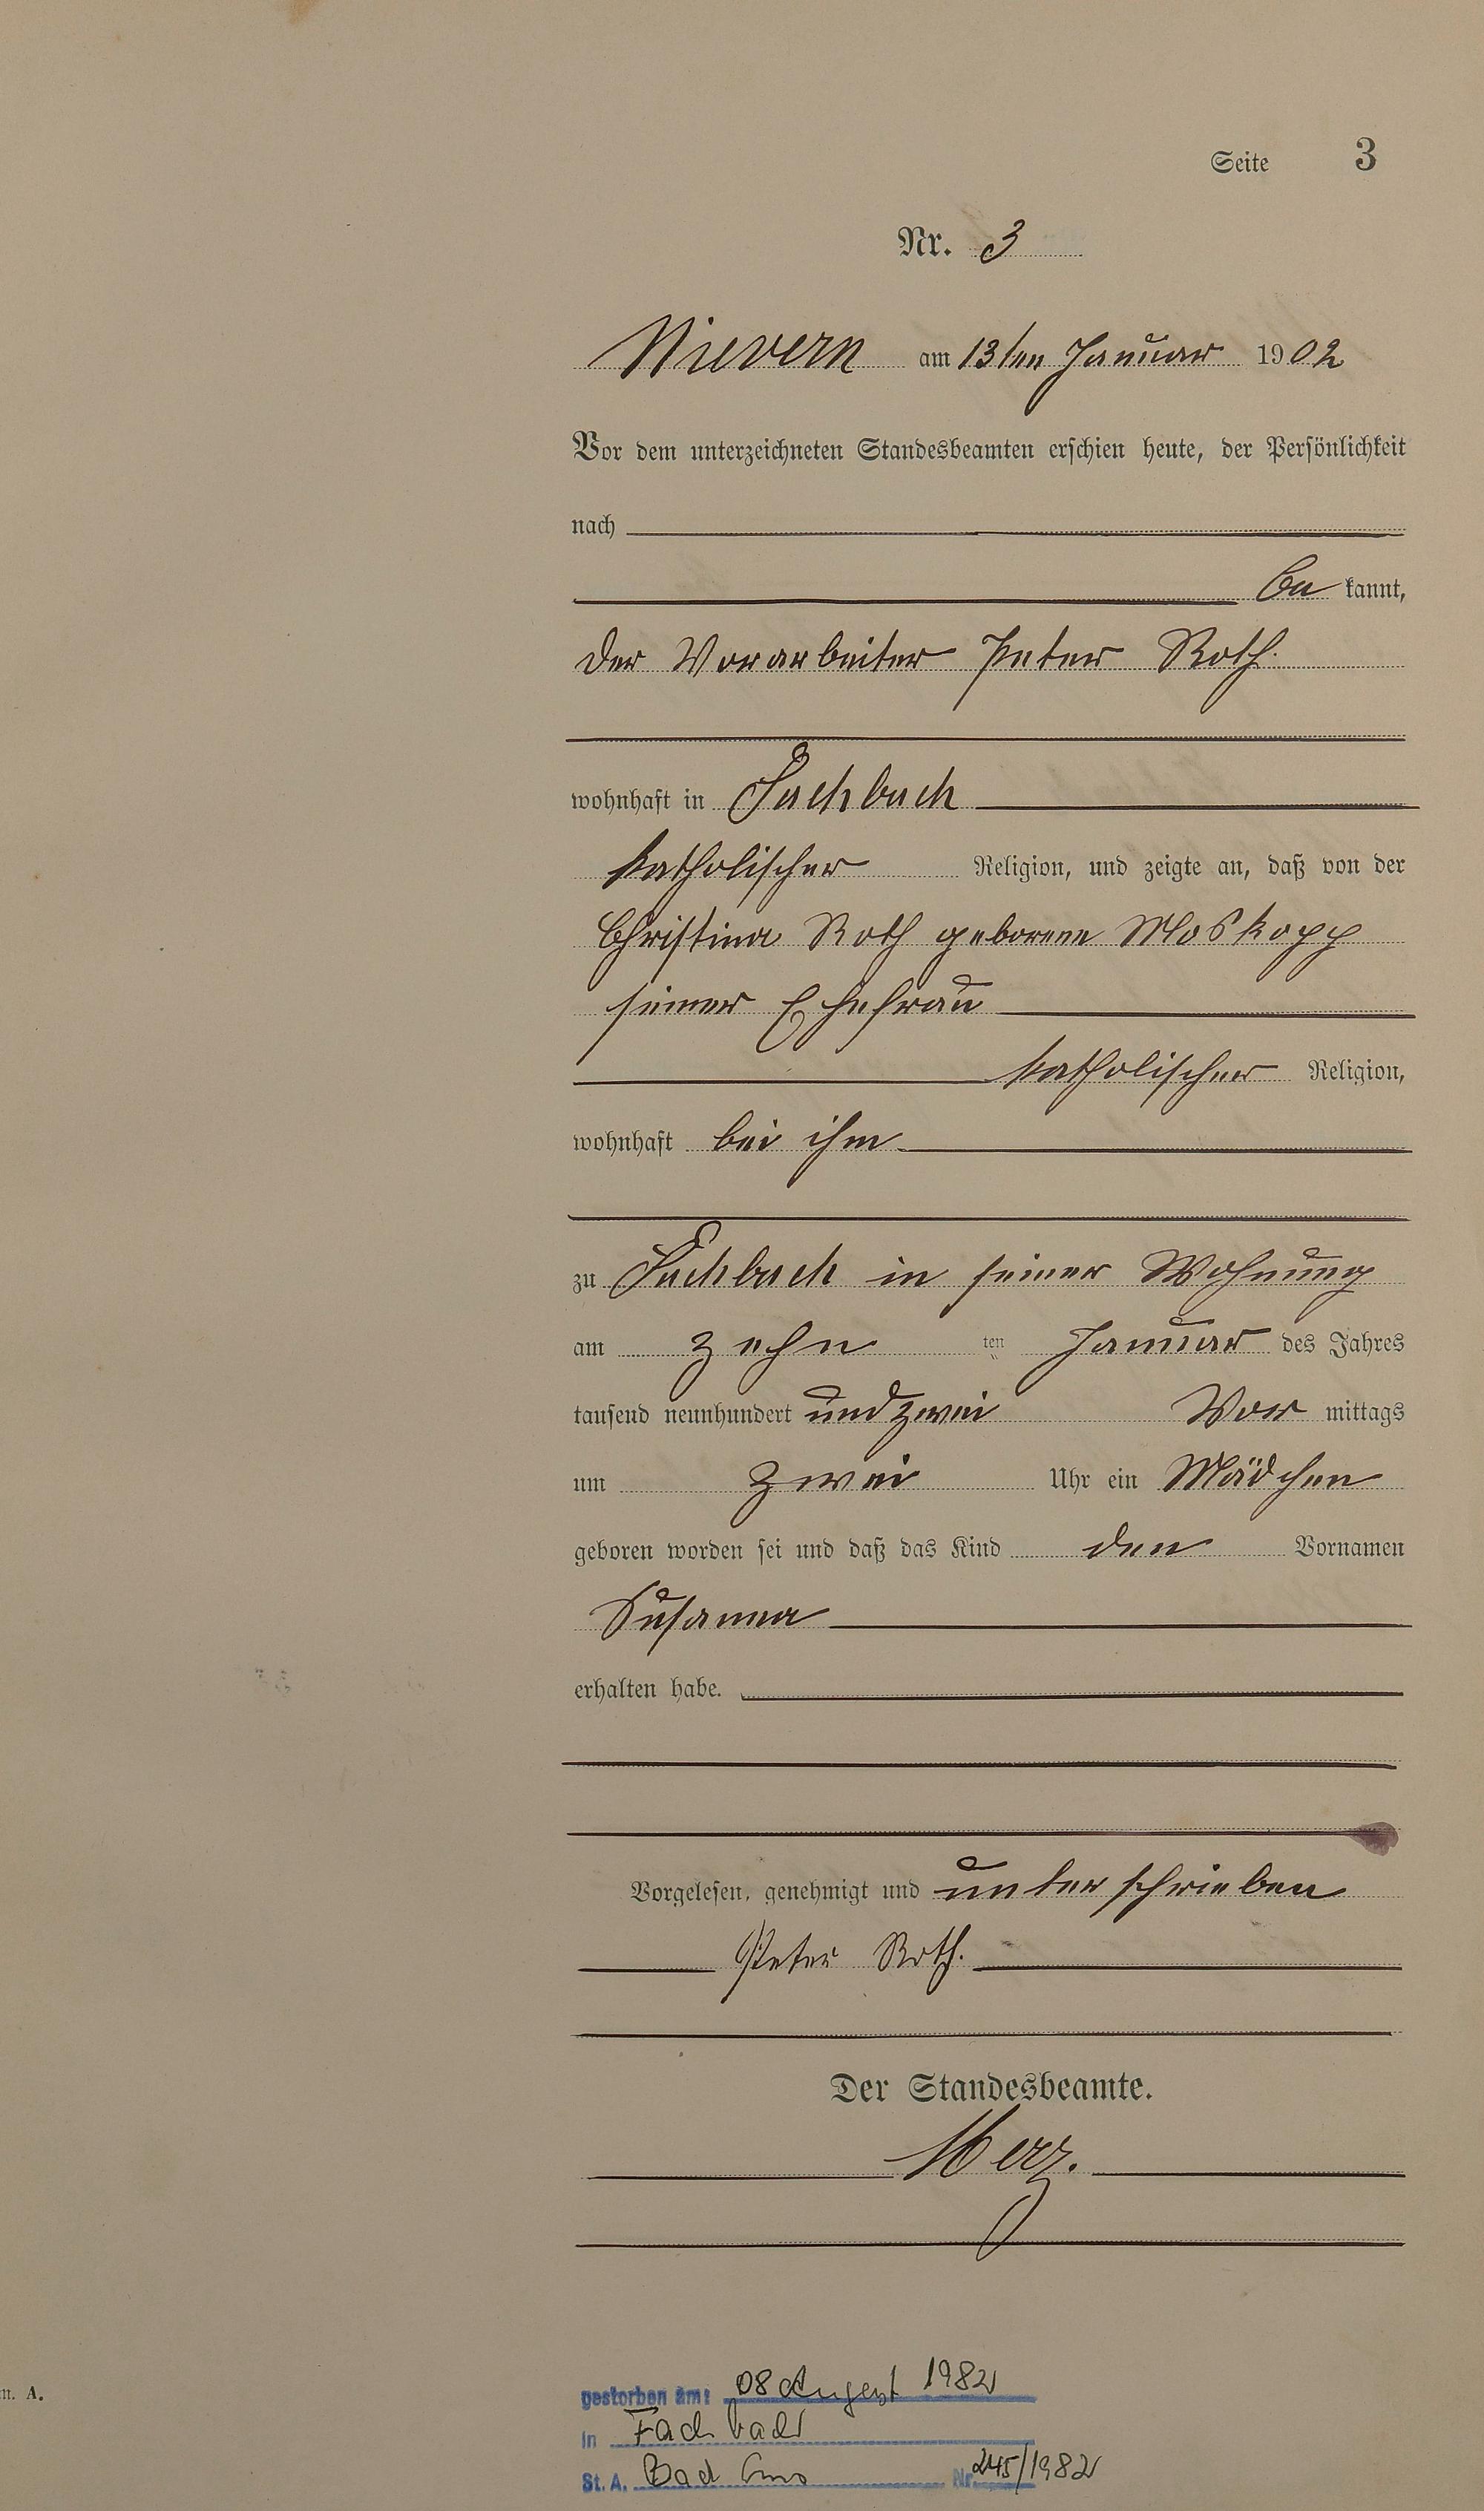 Seite 3
Nr. 3
Nievern am 13ten Januar 1902
Vor dem unterzeichneten Standesbeamten erschien heute, der Persönlichkeit
nach
be kannt,
der Vorarbeiter Peter Roth.
wohnhaft in Fachbach
katholischer Religion, und zeigte an, daß von der
Christina Roth geborene Moskopp
seiner Ehefrau
katholischer Religion,
wohnhaft bei ihm
zu Fachbach in seiner Wohnung
am zehn ten Januar des Jahres
tausend neunhundert und zwei Vor mittags
um zwei Uhr ein Mädchen
geboren worden sei und daß das Kind den Vornamen
Susanna
erhalten habe.
Vorgelesen, genehmigt und unterschrieben
Peter Roth.
Der Standesbeamte.
Merz.
m. A.
gestorben am: 08 August 1982
in Fachbach
St. A. Bad Ems Nr. 245/1982